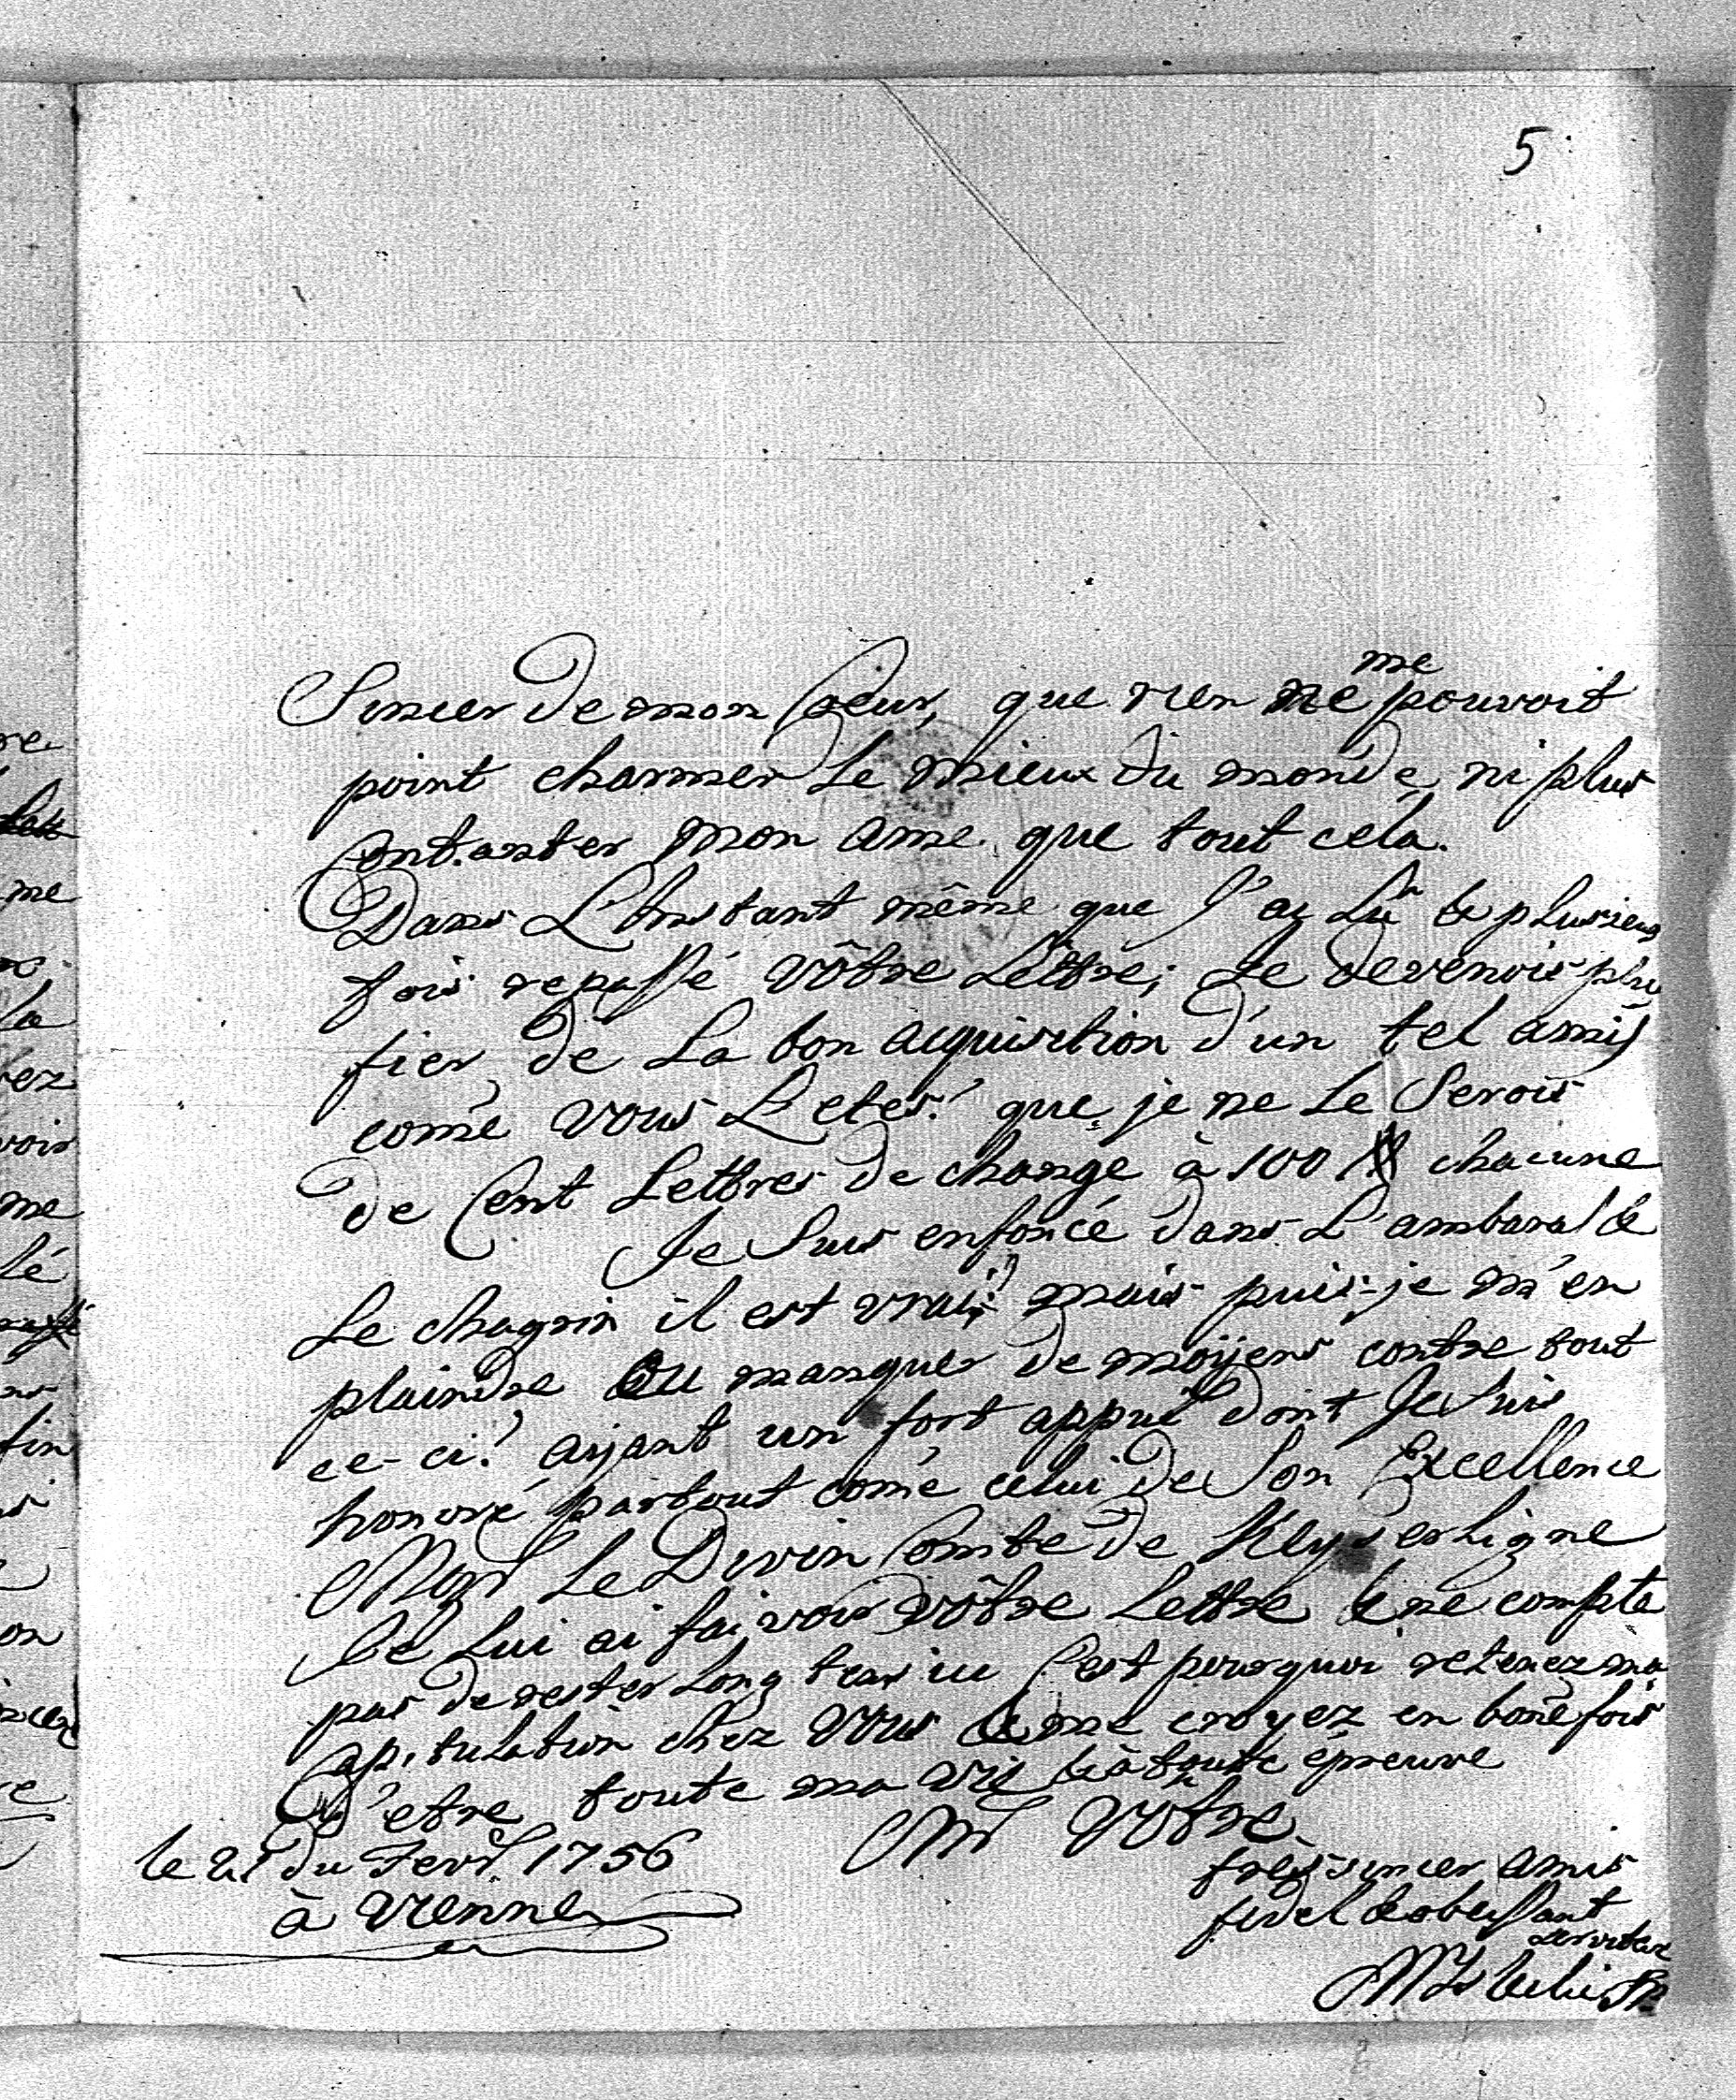 5
Sincer de mon Coeur, que rien ne me pouvoit
point charmer le mieux du monde, ni plus
Contanter mon ame que tout cela.
Dans L'Instant même que J'ay Lû & plusieurs
fois repassé vôtre Lettre; Je devenois plus
fier de La bon acquisition d'un tel amis
comē vous L'etes! que je ne le Serois
de Cent Lettres de change à 100 chacune
Je Suis enfoncé dans L'ambaras &
Le chagrin il est vrai; mais puis-je m'en
plaindre ou manquer de moÿens contre tout
ce-ci? aÿant un fort appui dont Je Suis
honoré partout comē celui de Son Excellence
Mgr Le Divin Comte de Keyserligne
Je Lui ai fai voir vôtre Lettre & ne compte
pas de rester Long tems ici C'est pourquoi retenez ma
Capitulation chez vous & me croyez en bonē fois
d'etre toute ma vie & à toute épreuve
Mr Vôtre
le 21 du Fevr. 1756
à Vienne
tres sincer amis
fidel & obeissant
serviteur